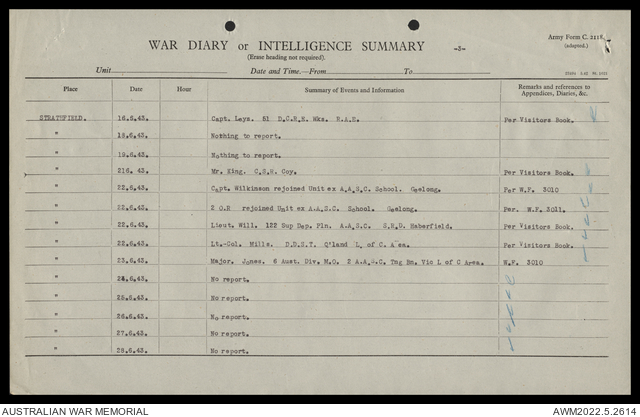 Army Form C. 2118.
(adapted.)
WAR DIARY or INTELLIGENCE SUMMARY -3-
(Erase heading not required).
Unit Date and Time.—From To
Place Date Hour Summary of Events and Information Remarks and references to Appendices, Diaries, &c.
STRATHFIELD. 16.6.43. Capt. Leys. 51 D.C.R.E. Wks. R.A.E. Per Visitors Book.
" 18.6.43. Nothing to report.
" 19.6.43. Nothing to report.
" 216. 43. Mr. King. C.S.R. Coy. Per Visitors Book.
" 22.6.43. Capt. Wilkinson rejoined Unit ex A.A.S.C. School. Geelong. Per W.F. 3010
" 22.6.43. 2 O.R rejoined Unit ex A.A.S.C. School. Geelong. Per. W.F. 3011.
" 22.6.43. Lieut. Will. 122 Sup Dep. Pln. A.A.S.C. S.R.D. Haberfield. Per Visitors Book.
" 22.6.43. Lt.-Col. Mills. D.D.S.T. Q'land L of C. Area. Per Visitors Book.
" 23.6.43. Major. Jones. 6 Aust. Div. M.O. 2 A.A.S.C. Tng Bn. Vic L of C Area. W.F. 3010
" 24.6.43. No report.
" 25.6.43. No report.
" 26.6.43. No report.
" 27.6.43. No report.
" 28.6.43. No report.
AUSTRALIAN WAR MEMORIAL AWM2022.5.2614